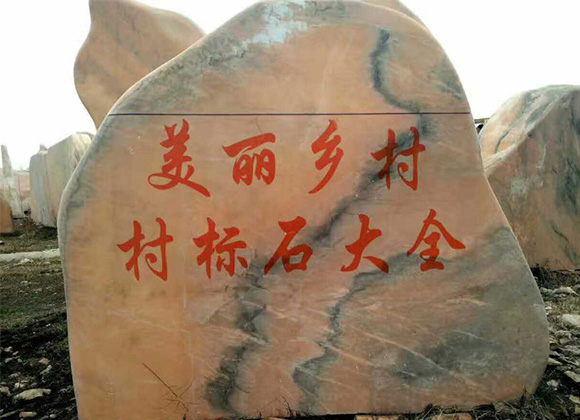 美丽乡村
村标石大全